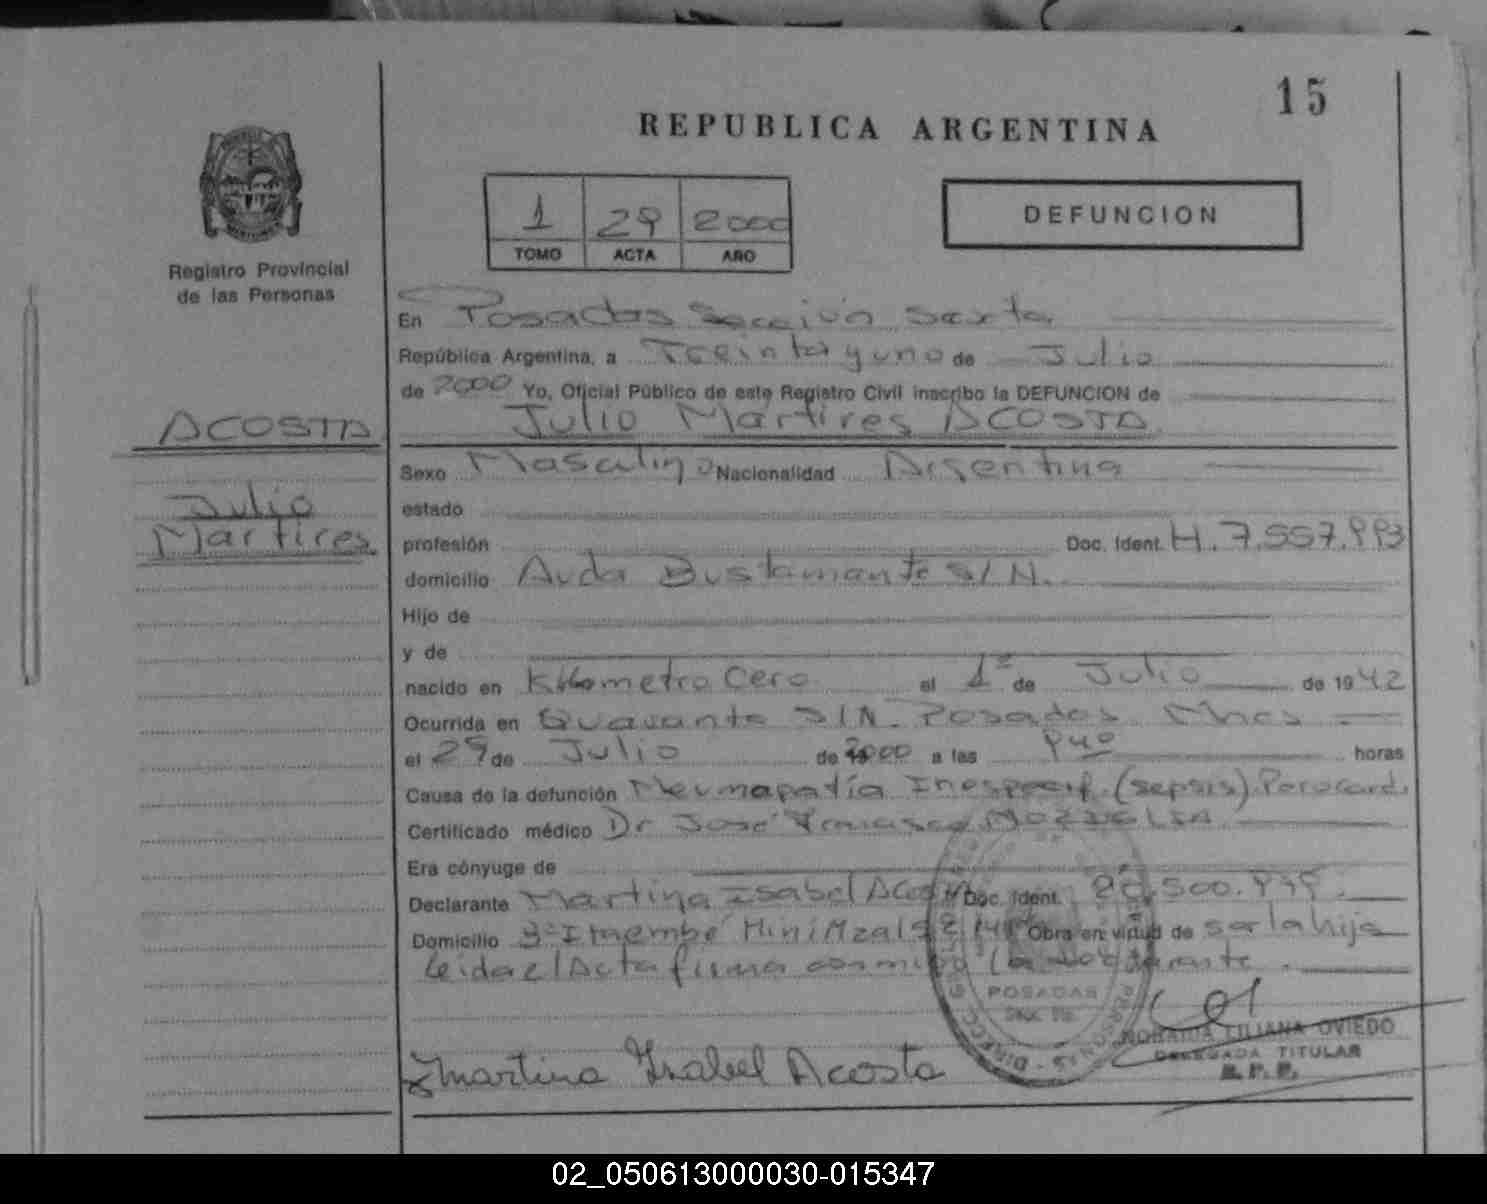 15
REPUBLICA ARGENTINA
1 29 2000
TOMO ACTA AÑO
DEFUNCION
Registro Provincial
de las Personas
ACOSTA
Julio
Martires
En Posadas Sección Sexta
República Argentina, a Treinta y uno de Julio
de 2000 Yo, Oficial Público de este Registro Civil inscribo la DEFUNCION de
Julio Martires ACOSTA
Sexo Masculino Nacionalidad Argentina
estado
profesión Doc. Ident. H. 7.557.993
domicilio Avda Bustamante S/N.
Hijo de
y de
nacido en Kilometro Cero el 1º de Julio de 1942
Ocurrida en Quaranta S/N. Posados Mnes
el 29 de Julio de 2000 a las 940 horas
Causa de la defunción Neumopatía Inespecif. (sepsis). Parocard.
Certificado médico Dr José Francisco
Era cónyuge de
Declarante Martina Isabel Acosta Doc. Ident.
Domicilio Bº Itaembé Mini Obra en virtud de ser la hija
leida el Acta firma conmigo la declarante.
POSADAS
Martina Ysabel Acosta
LILIANA OVIEDO
DELEGADA TITULAR
R. P. P.
02_050613000030-015347